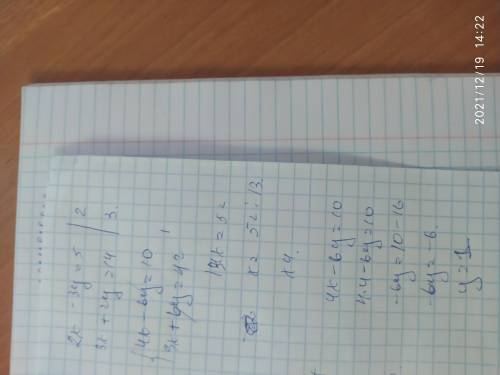 2x - 3y = 5 | 2
3x + 2y = 14 | 3.
{ 4x - 6y = 10
9x + 6y = 42
13x = 52
x = 52 : 13
x 4.
4x - 6y = 10
4·4 - 6y = 10
-6y = 10 - 16
-6y = -6.
y = 1
2021/12/19 14:22